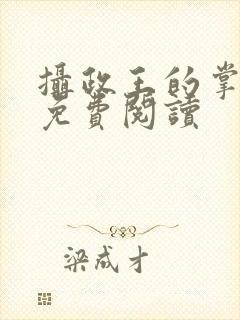 攝政王的掌
免費閱讀
梁成才